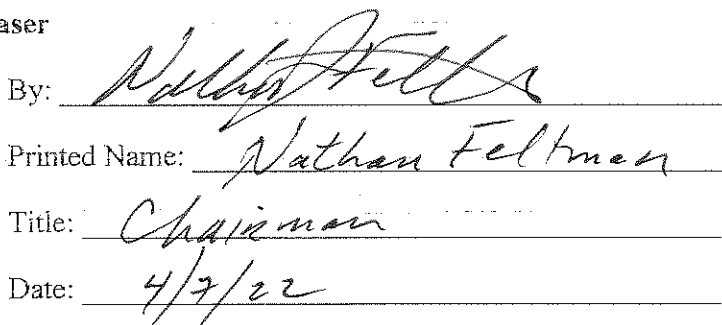 aser
By: Nathan J Feltman
Printed Name: Nathan Feltman
Title: Chairman
Date: 4/7/22